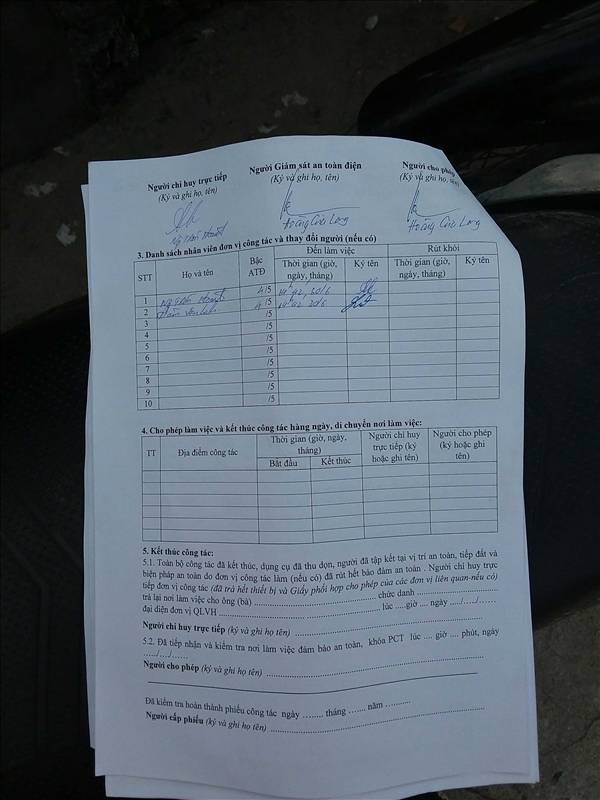 Người chỉ huy trực tiếp
(Ký và ghi họ, tên)
Người Giám sát an toàn điện
(Ký và ghi họ, tên)
Người cho phép
(Ký và ghi họ, tên)
Hoàng Cửu Long
Hoàng Cửu Long
3. Danh sách nhân viên đơn vị công tác và thay đổi người (nếu có)
STT
Họ và tên
Bậc ATĐ
Đến làm việc
Rút khỏi
Thời gian (giờ, ngày, tháng)
Ký tên
Thời gian (giờ, ngày, tháng)
Ký tên
1 4/5
2 4/5
3 /5
4 /5
5 /5
6 /5
7 /5
8 /5
9 /5
10 /5
4. Cho phép làm việc và kết thúc công tác hàng ngày, di chuyển nơi làm việc:
TT
Địa điểm công tác
Thời gian (giờ, ngày, tháng)
Bắt đầu
Kết thúc
Người chỉ huy trực tiếp (ký hoặc ghi tên)
Người cho phép (ký hoặc ghi tên)
5. Kết thúc công tác:
5.1. Toàn bộ công tác đã kết thúc, dụng cụ đã thu dọn, người đã tập kết tại vị trí an toàn, tiếp đất và
biện pháp an toàn do đơn vị công tác làm (nếu có) đã rút hết bảo đảm an toàn . Người chỉ huy trực
tiếp đơn vị công tác (đã trả hết thiết bị và Giấy phối hợp cho phép của các đơn vị liên quan-nếu có)
trả lại nơi làm việc cho ông (bà) ........................ chức danh ........................
đại diện đơn vị QLVH ........................ lúc ....giờ ... ngày ..../...../......
Người chỉ huy trực tiếp (ký và ghi họ tên) ........................
5.2. Đã tiếp nhận và kiểm tra nơi làm việc đảm bảo an toàn, khóa PCT lúc .... giờ .... phút, ngày
...../..../......
Người cho phép (ký và ghi họ tên) ........................
Đã kiểm tra hoàn thành phiếu công tác ngày ........ tháng ....... năm ..........
Người cấp phiếu (ký và ghi họ tên) ........................